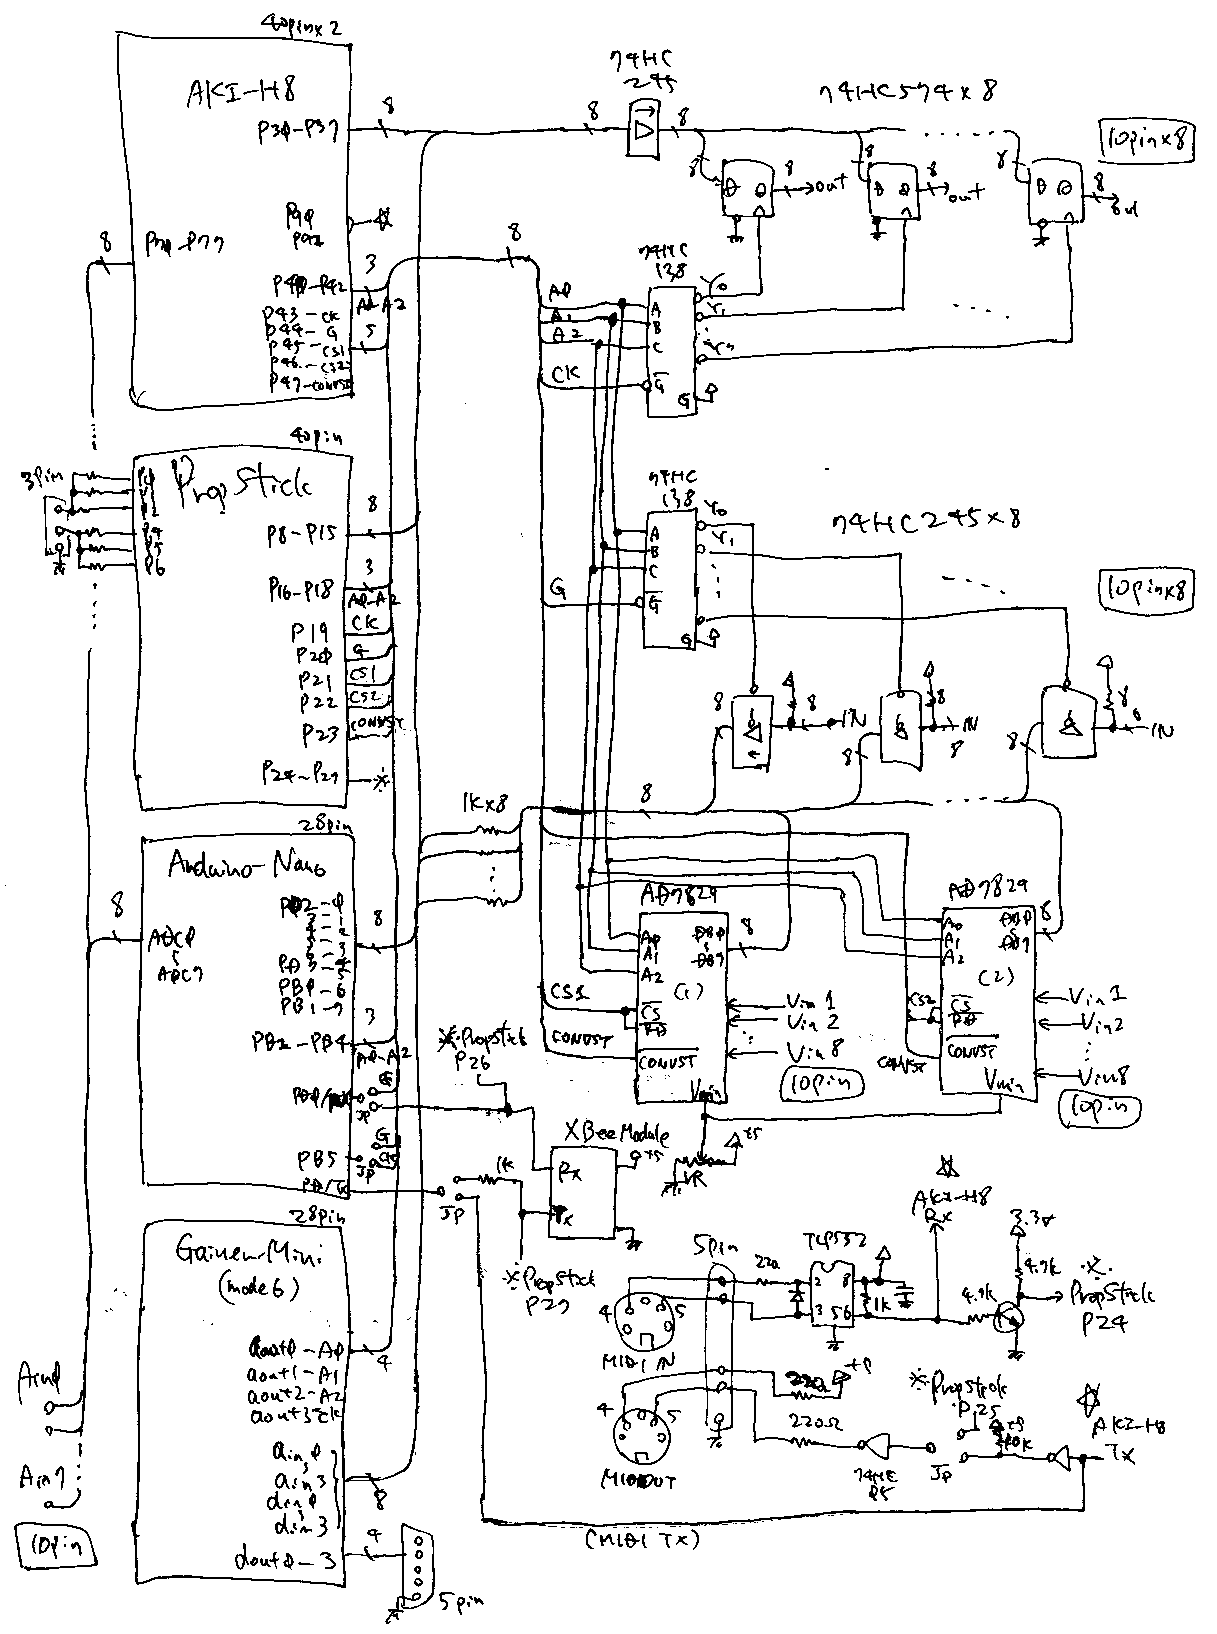 40pin×2
AKI-H8
P30-P37
8
P70-P77
8
P40-P42
3
A0-A2
P43-CK
P44-G
P45-CS1
5
P46-CS2
P47-CONVST
74HC
245
8
8
74HC574×8
10pin×8
8
D Q
8
out
8
D Q
8
out
8
D Q
8
out
8
74HC
138
A0
A1
A2
CK
A
B
C
G
G
Y0
Y1
Y7
40pin
PropStick
3pin
P0
P1
P2
P4
P5
P6
P8-P15
8
P16-P18
3
A0-A2
P19
CK
P20
G
P21
CS1
P22
CS2
P23
CONVST
P24-P29
※
74HC
138
A
B
C
G
G
G
Y0
Y1
74HC245×8
10pin×8
8
8
IN
8
8
8
IN
8
8
IN
1K×8
8
28pin
Arduino-Nano
8
ADC0
ADC7
8
PB0-6
PB1-7
PB2-PB4
3
A0-A2
G
JP
PB5
G
JP
AD7829
(1)
A0
A1
A2
CS
RD
CONVST
DB0
DB7
8
CS1
CONVST
Vin1
Vin2
Vin8
10pin
Vmin
AD7829
(2)
A0
A1
A2
CS
RD
CONVST
DB0
DB7
8
CS2
CONVST
Vin1
Vin2
Vin8
10pin
Vmin
※PropStick
P26
XBee Module
+5
Rx
Tx
1K
JP
VR
+5
※PropStick
P27
28pin
Gainer-Mini
(mode6)
aout0-A0
aout1-A1
aout2-A2
aout3-CK
4
ain0
ain3
din0
din3
8
dout0-3
4
5pin
Ain0
Ain7
10pin
5pin
4
5
MIDI IN
220
TLP552
2
3
8
5
6
1K
AKI-H8
Rx
3.3V
4.7K
4.7K
※
PropStick
P24
4
5
MIDI OUT
220Ω
+5
220Ω
74HC
05
JP
※PropStick
P25
+5
10K
AKI-H8
TX
(MIDI TX)